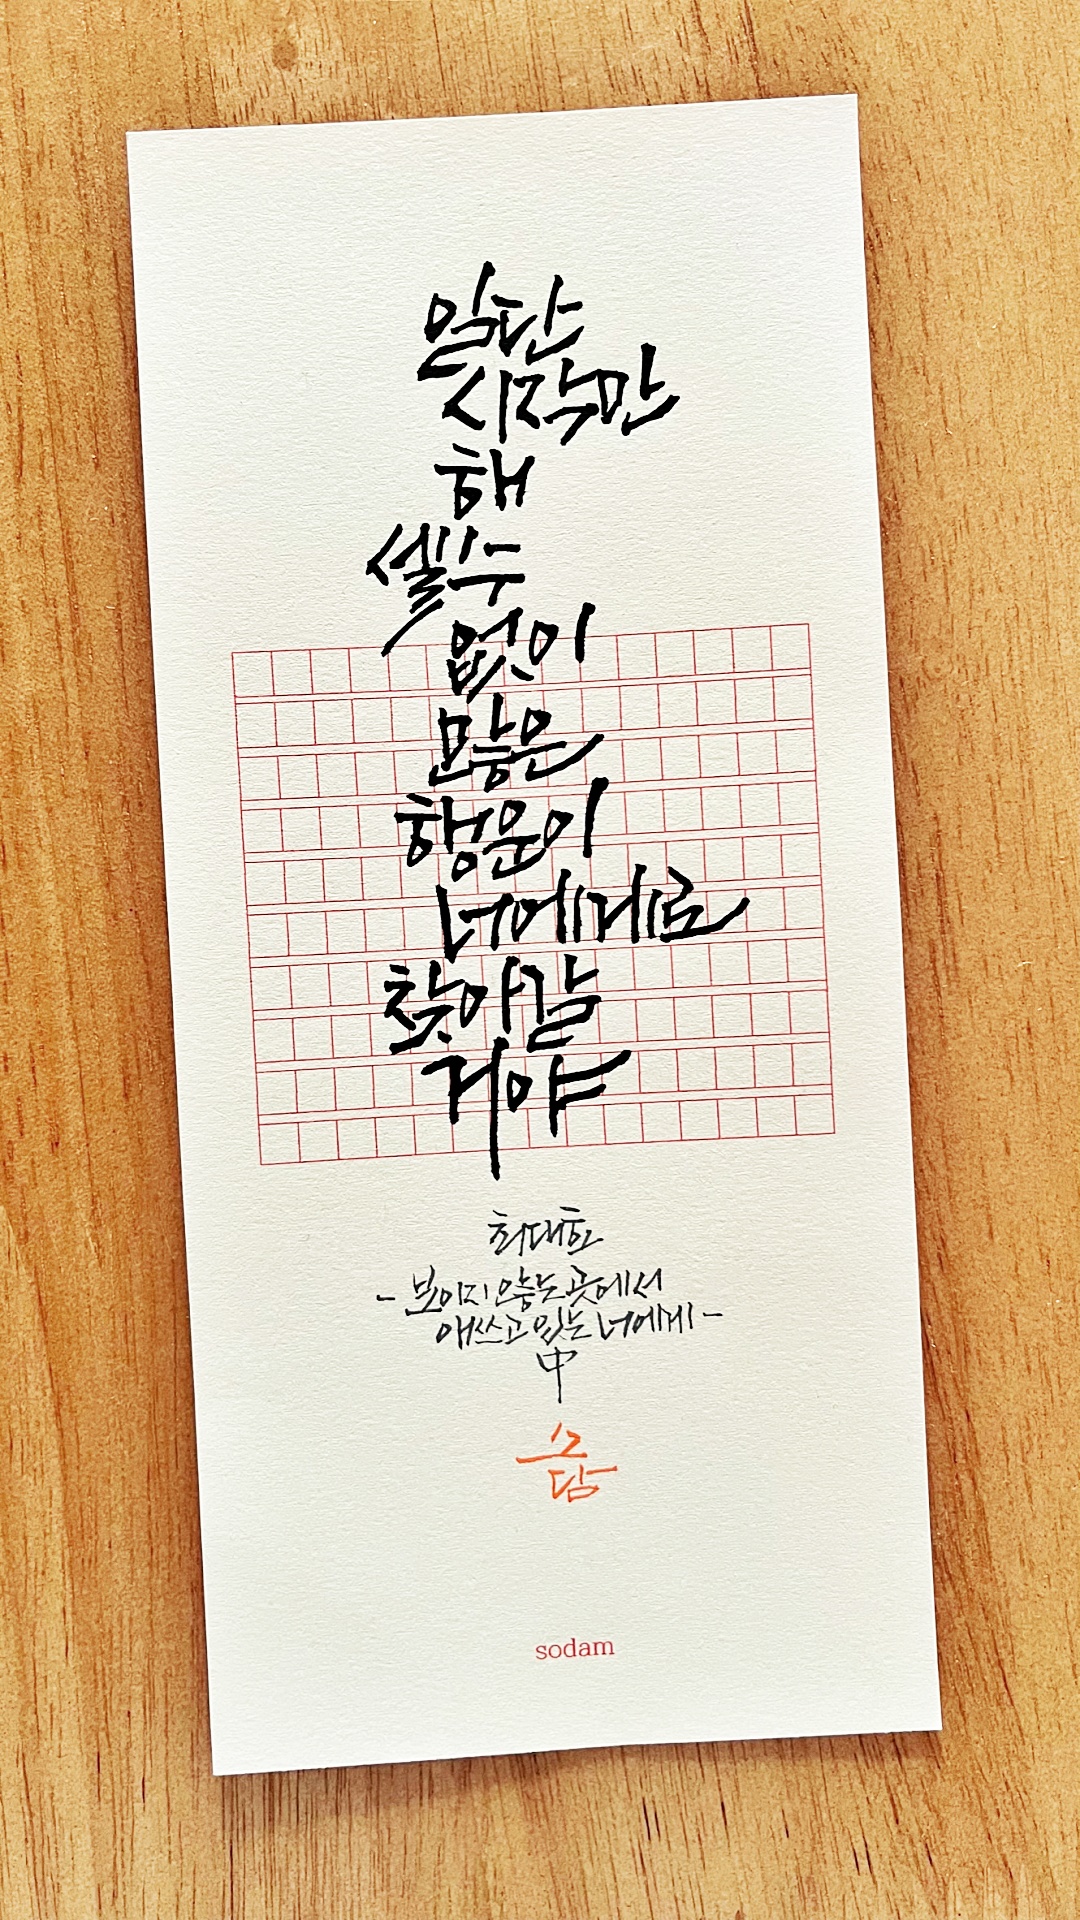 일단
시작만
해
셀 수
없이
많은
행운이
너에게로
찾아갈
거야
최대호
- 보이지 않는 곳에서
애쓰고 있는 너에게 -
中
소담
sodam